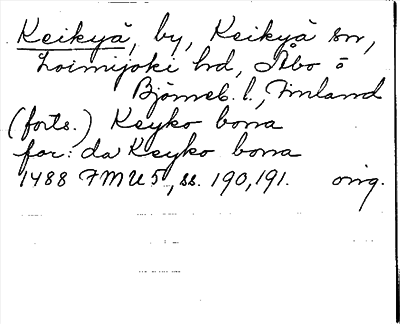 Keikyä, by, Keikyä sn,
Loimijoki hd, Åbo o
Björneb. l., Finland
(forts.) Keyko bona
for: da Keyko bona
1488 FMU 5, ss. 190, 191. orig.